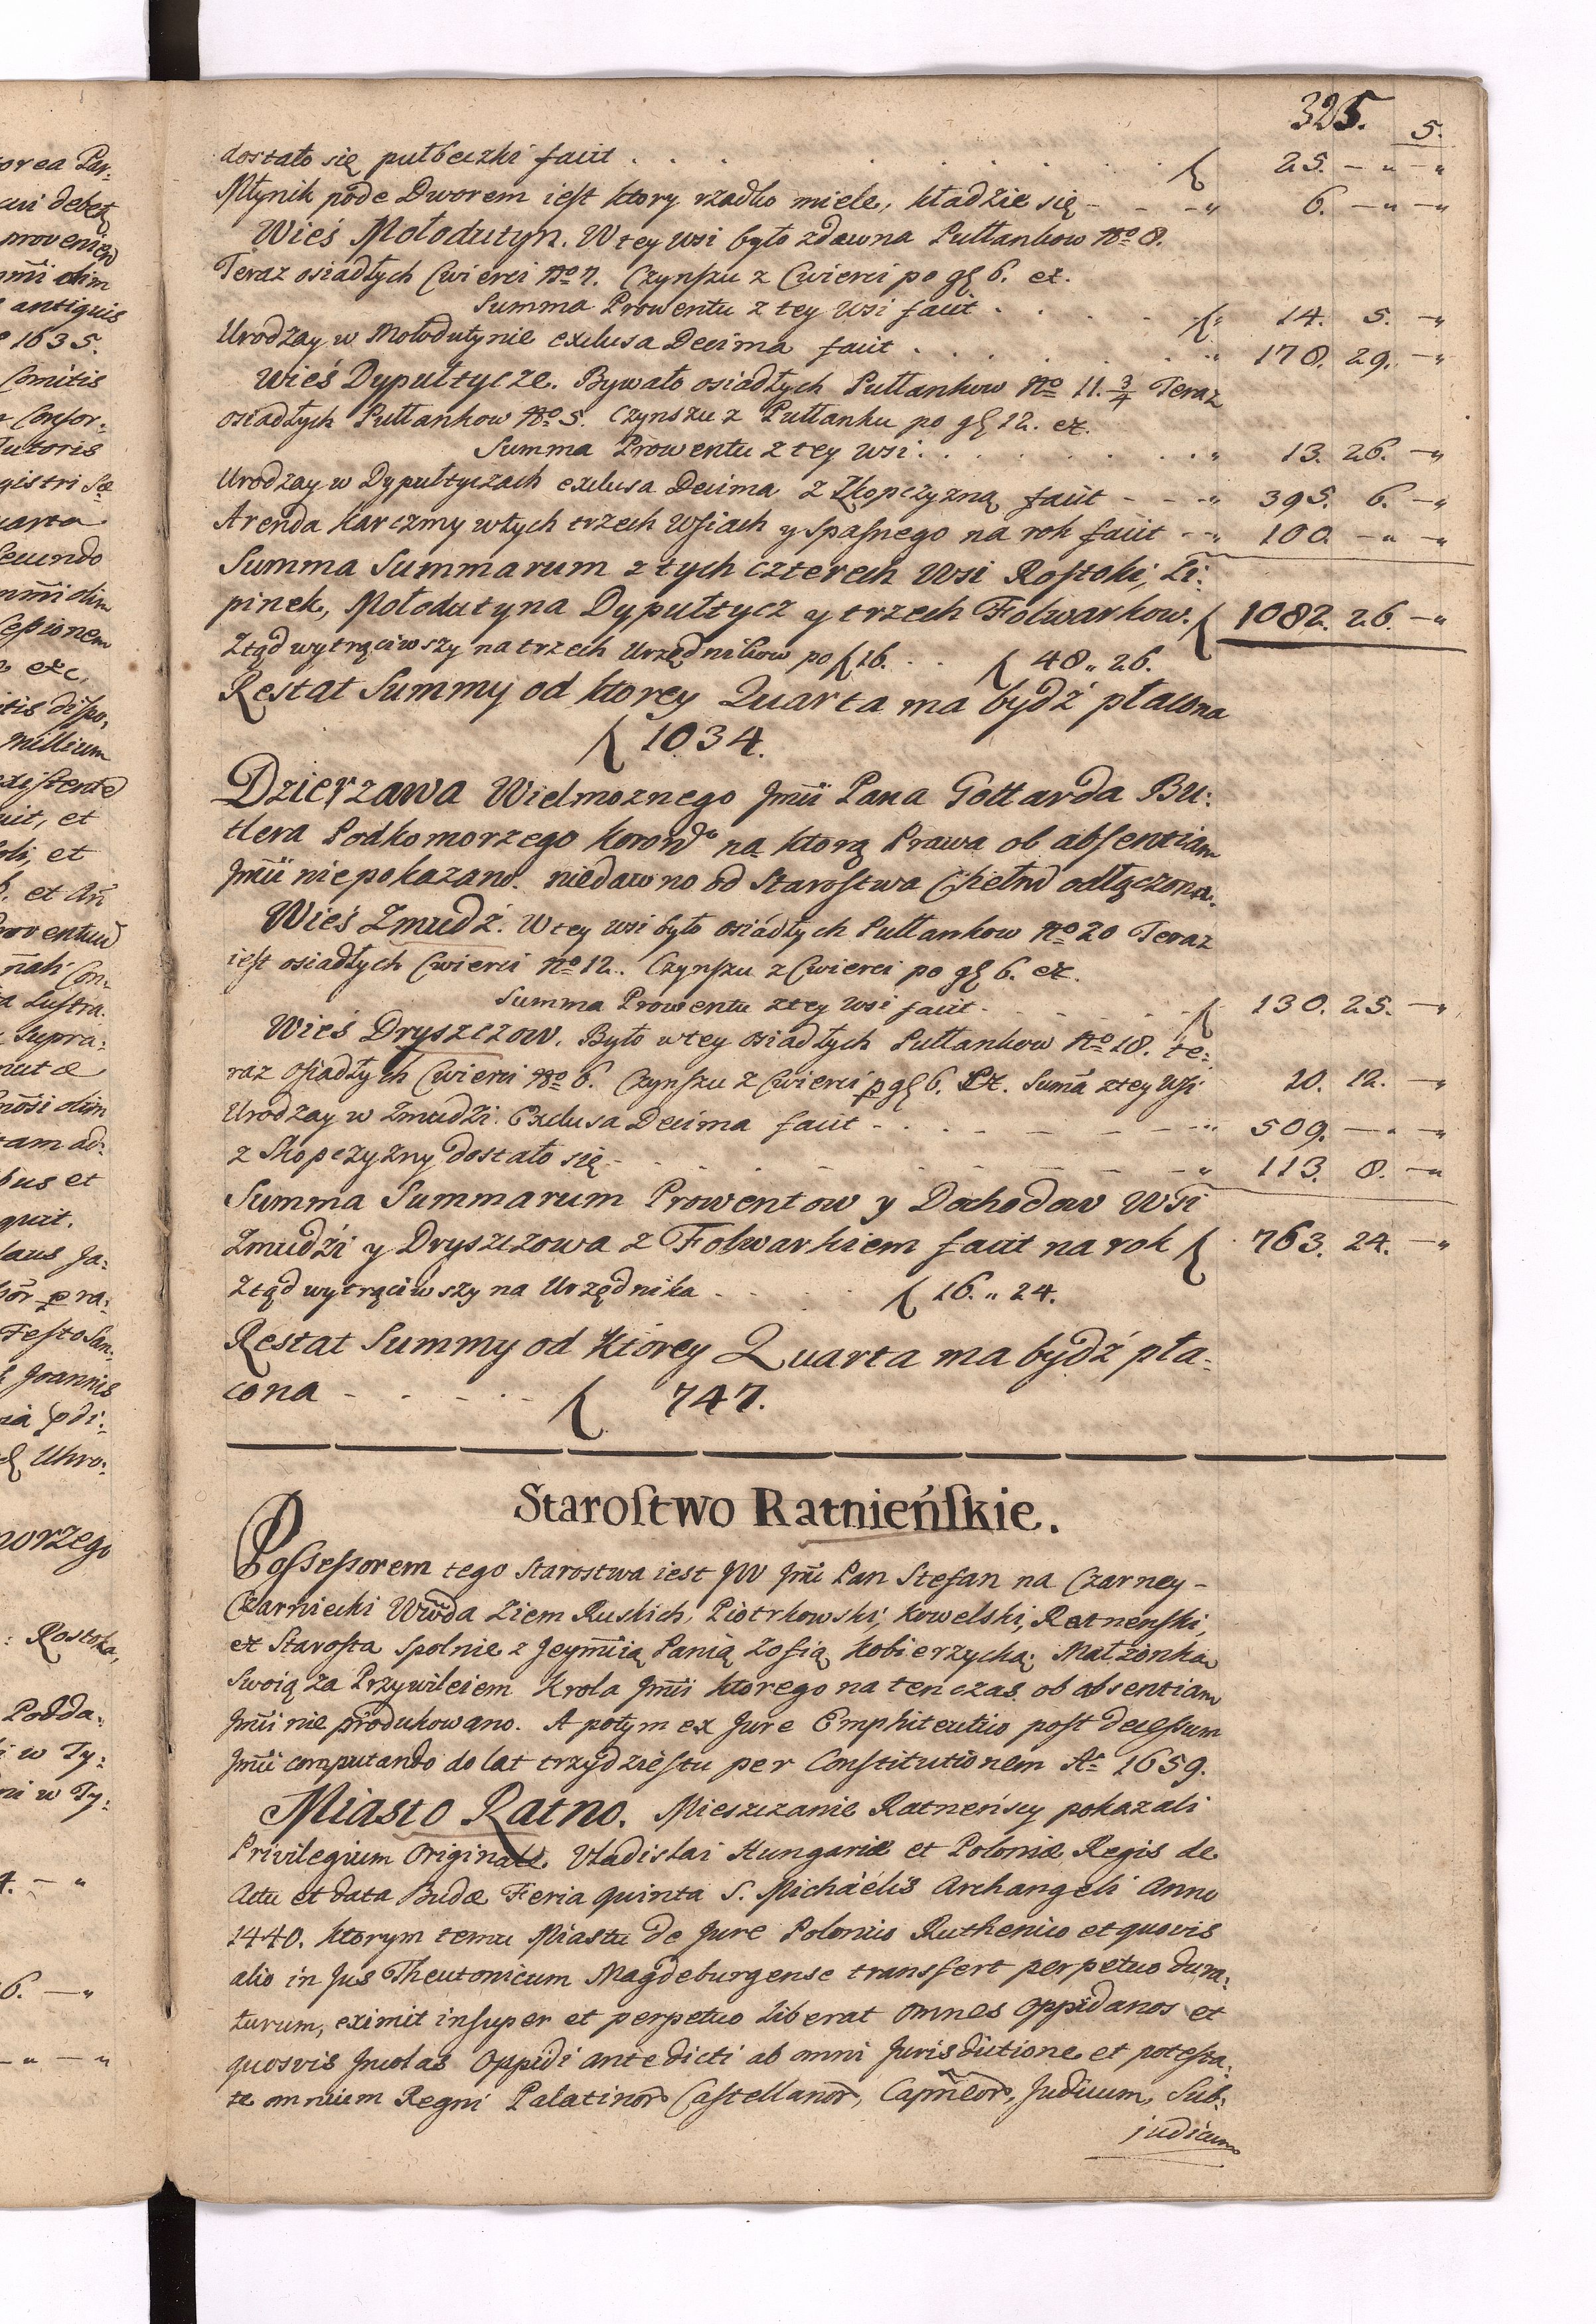 325.
5.
dostało się pułbeczki facit . . . . . . . . ƒ 25. — " — "
Młynik pode Dworem iest ktory rzadko miele, kładzie się - - - " 6. — " — "
Wieś Mołodutyn. W tey wsi było zdawna Pułłankow No 8.
Teraz osiadłych Cwierci No 7. Czynszu z Cwierci po gł 6. et.
Summa Prowentu z tey wsi facit . . . . ƒ " 14. 5. — "
Urodzay w Mołodutynie exclusa Decima facit . . . . . " 178. 29. — "
Wieś Dypułtycze. Bywało osiadłych Pułłankow No 11. 3/4 Teraz
osiadłych Pułłankow No 5. Czynszu z Pułłanku po gł 12. et.
Summa Prowentu z tey wsi . . . . . . . " 13. 26. — "
Urodzay w Dypułtyczach exclusa Decima z Skopczyzną facit - - - " 395. 6. — "
Arenda Karczmy w tych trzech Wsiach y spasnego na rok facit - - " 100. — " — "
Summa Summarum z tych czterech Wsi Rostoki, Li:
pinek, Mołodutyna Dypułtycz y trzech Folwarkow. ƒ 1082. 26. — "
Ztąd wytrąciwszy na trzech Urzędnikow po ƒ 16. . . ƒ 48 " 26.
Restat Summy od ktorey Quarta ma bydź płacona
ƒ 1034.
Dzierzawa Wielmoznego Jmci Pana Gottarda Bu:
tlera Podkomorzego Koron na ktorą Prawa ob absentiam
Jmci nie pokazano. niedawno od Starostwa Chełm odłączona.
Wieś Zmudź. W tey wsi było osiadłych Pułłankow No 20 Teraz
iest osiadłych Cwierci No 12. Czynszu z Cwierci po gł 6. et.
Summa Prowentu z tey wsi facit . . . . . ƒ 130. 25. — "
Wieś Dryszczow. Było w tey osiadłych Pułłankow No 18. te:
raz osiadłych Cwierci No 6. Czynszu z Cwierci p gł 6. Et. Suma z tey Wsi 10. 12. — "
Urodzay w Zmudzi. Exclusa Decima facit - - - - - - " 509. — " — "
z Skopczyzny dostało się - - - - - - - - " 113. 8. — "
Summa Summarum Prowentow y Dochodow Wsi
Zmudzi y Dryszczowa z Folwarkiem facit na rok ƒ 763. 24. — "
Ztąd wytrąciwszy na Urzędnika . . . . . ƒ 16. " 24.
Restat Summy od Ktorey Quarta ma bydź pła-
cona - - - - - ƒ 747.
Starostwo Ratnieńskie.
Possessorem tego Starostwa iest JW Jmci Pan Stefan na Czarney -
Czarniecki Wwoda Ziem Ruskich, Piotrkowski, Kowelski, Ratnenski,
et Starosta Spolnie z Jeymcią Panią Zofią Kobierzycką Małzonką
Swoią za Przywileiem Krola Jmci ktorego na ten czas ob absentiam
Jmci nie produkowano. A potym ex Jure Emphiteutico post decessum
Jmci computando do lat trzydziestu per Constitutionem Ao 1659.
Miasto Ratno. Mieszczanie Ratneńscy pokazali
Privilegium Originale Vladislai Hungariæ et Poloniæ Regis de
Actu et data Budæ Feria quinta S. Michaelis Archangeli Anno
1440. ktorym temu Miastu de Jure Polonico Ruthenico et quovis
alio in Jus Theutonicum Magdeburgense transfert perpetuo dura:
turum, eximit insuper et perpetuo liberat omnes oppidanos et
quosvis Incolas Oppidi antedicti ab omni Jurisdictione et potesta:
te omnium Regni Palatinor Castellanor, Capneor, Judicum, Sub:
judicum